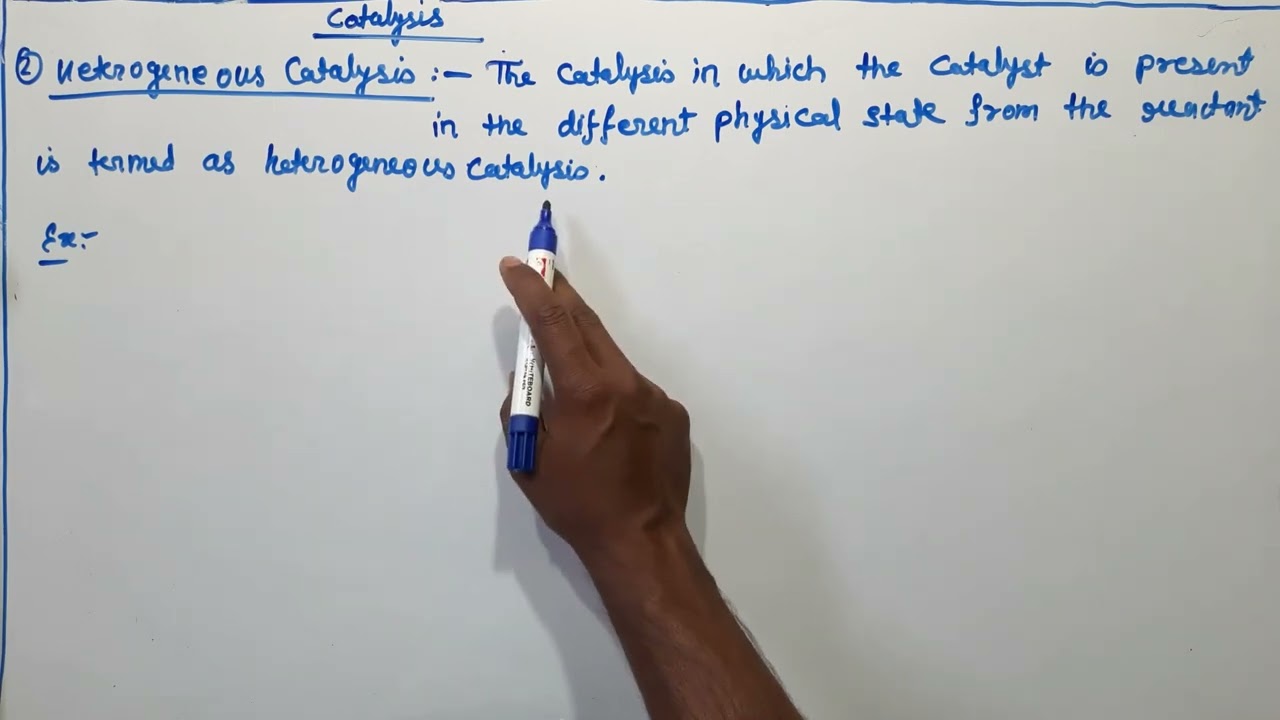 Catalysis
② Hetrogeneous Catalysis :- The Catalysis in which the Catalyst is present
in the different physical state from the reactant
is termed as heterogeneous Catalysis.
Ex:-
WHITEBOARD